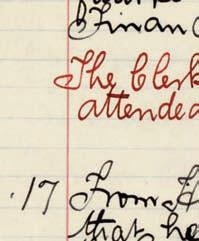 Finan
The Clerk
attended
·17 From
that he